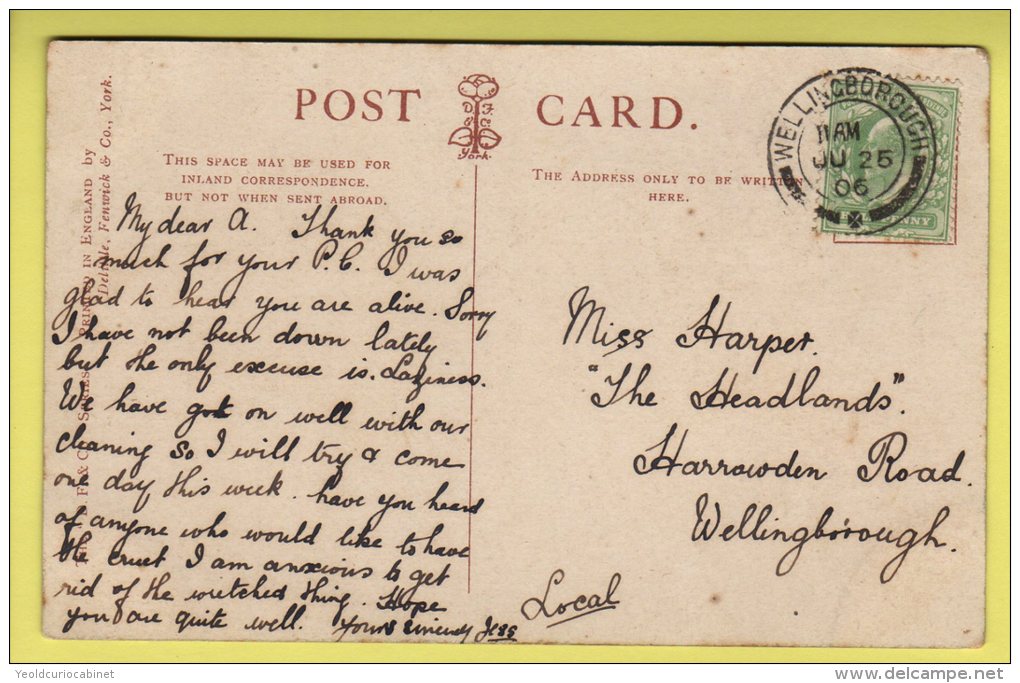 POST CARD.
D.F.
& Co
York.
THIS SPACE MAY BE USED FOR
INLAND CORRESPONDENCE.
BUT NOT WHEN SENT ABROAD.
THE ADDRESS ONLY TO BE WRITTEN
HERE.
PRINTED IN ENGLAND by
Delittle, Fenwick & Co., York.
WELLINGBOROUGH
11 AM
JU 25
06
My dear A. Thank you so
much for your P.C. I was
glad to hear you are alive. Sorry
I have not been down lately
but the only excuse is. Laziness.
We have got on well with our
cleaning so I will try & come
one day this week. have you heard
of anyone who would like to have
the cruet I am anxious to get
rid of the wretched thing. Hope
you are quite well. Yours sincerely Jess
Miss Harper.
"The Headlands".
Harrowden Road.
Wellingborough.
Local
Yeoldcuriocabinet
delcampe.net